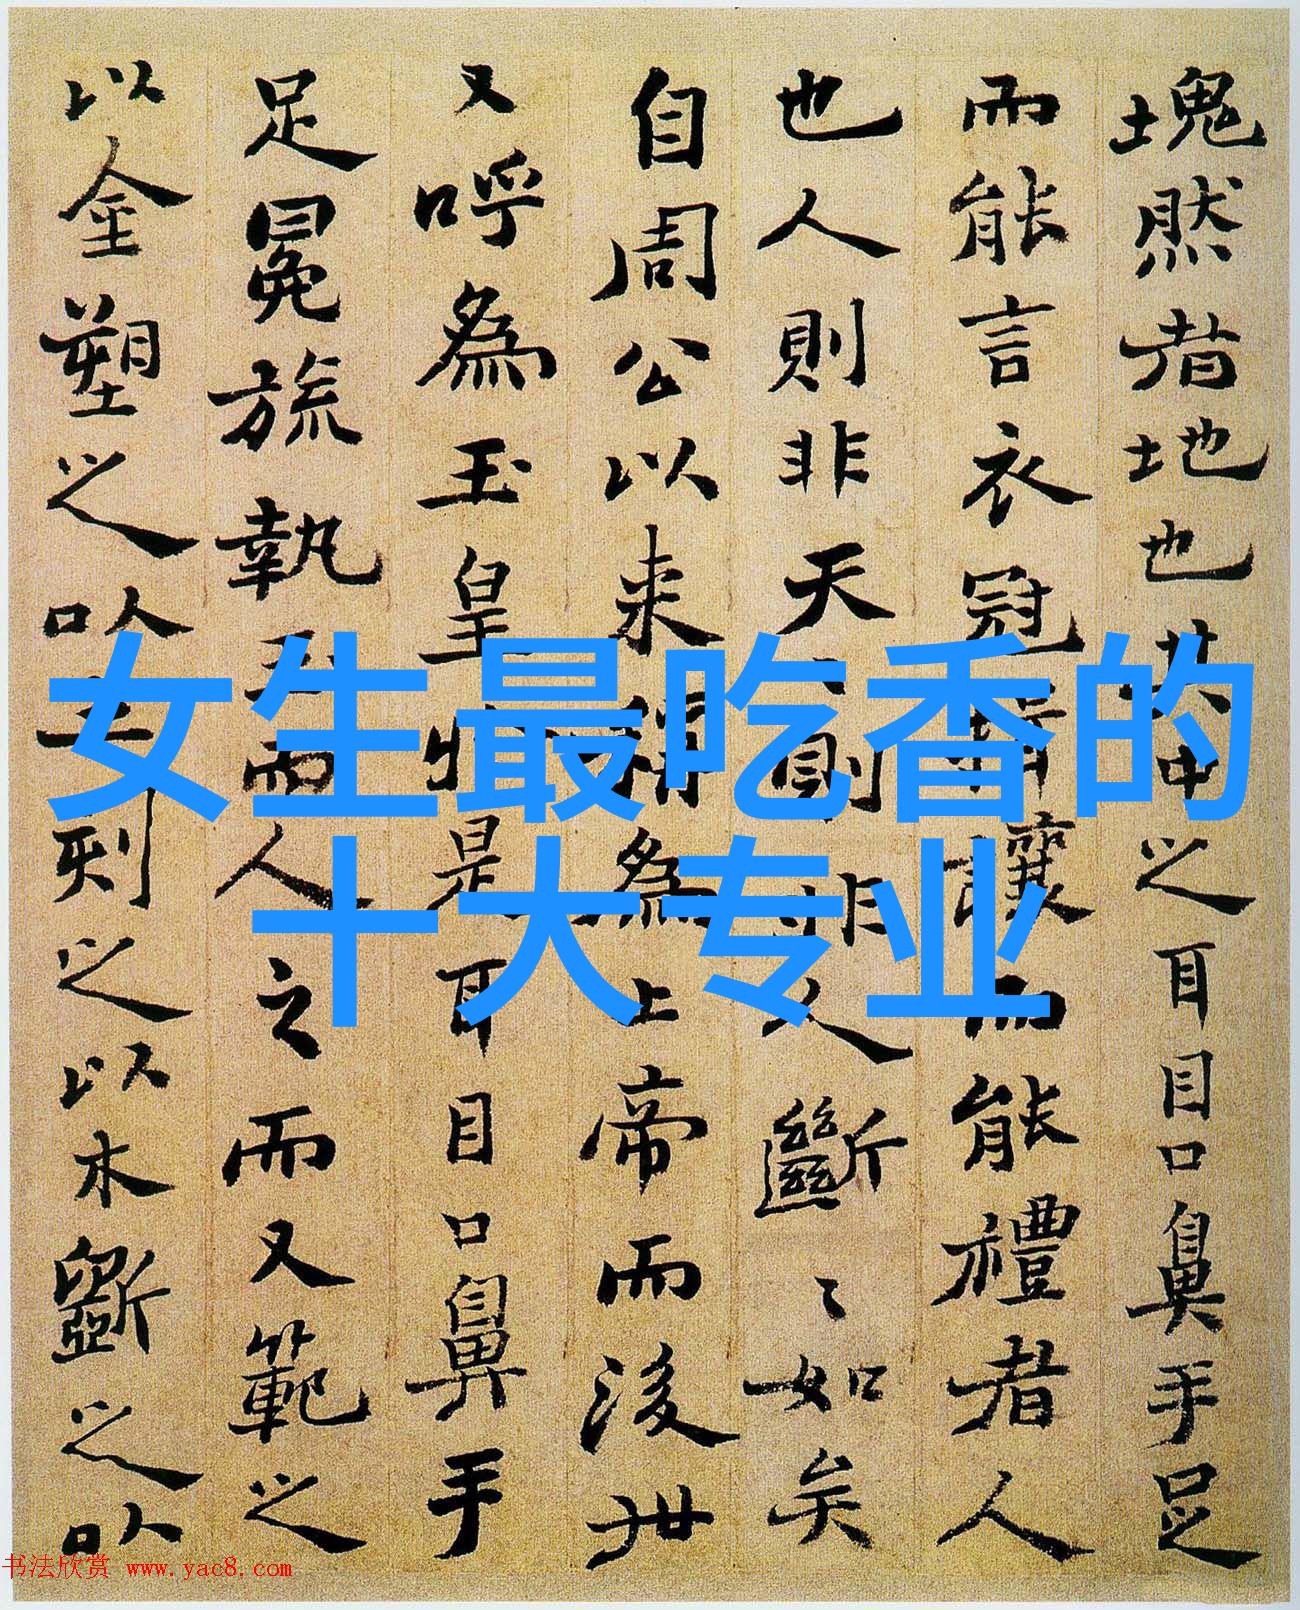 塊然者地也其中之耳目口鼻手足
而能言衣冠揖讓而能禮者人
也人則非天〻則非人斷〻〻如矣
自周公以来稱為上帝而後世
又呼為玉皇於是耳目口鼻手
足冕旒執玉而人之而又範之
以金塑之以土刻之以木斲之以
女生最吃香的
十大专业
书法欣赏 www.yac8.com